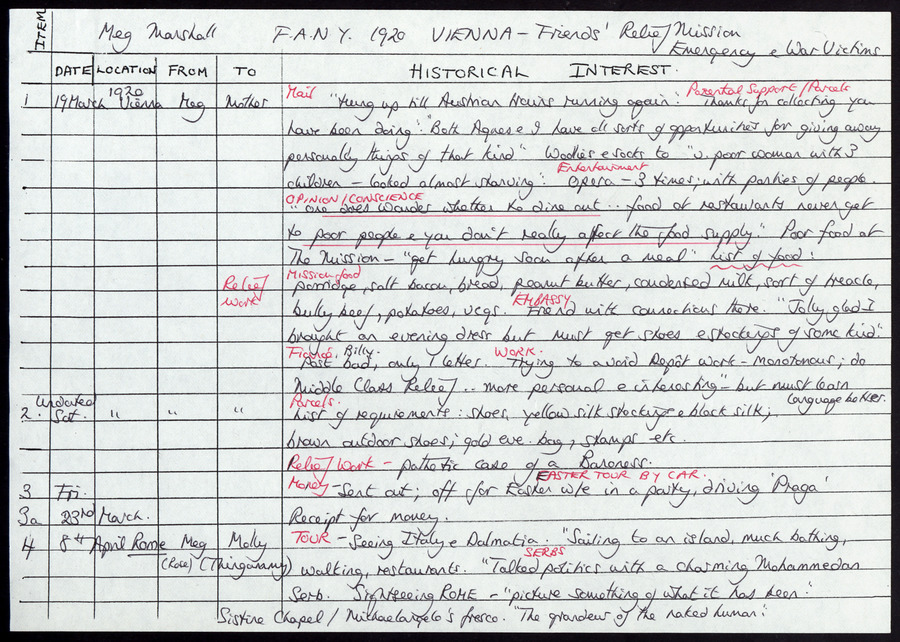 ITEM
Meg Marshall F.A.N.Y. 1920 VIENNA - Friends' Relief Mission
Emergency & War Victims
DATE LOCATION FROM TO HISTORICAL INTEREST.
1 19 March 1920 Vienna Meg Mother Mail "Hung up till Austrian trains running again". Parental Support/Parcels Thanks for collecting you
have been doing". "Both Agnes & I have all sorts of opportunities for giving away
personally things of that kind" Woollies & socks to "a poor woman with 3
children - looked almost starving". Entertainment Opera - 3 times; with parties of people.
OPINION/CONSCIENCE
"One does wonder whether to dine out .. food at restaurants never get
to poor people & you don't really affect the food supply." Poor food at
The Mission - "get hungry soon after a meal" List of food:
Relief work Mission food
porridge, salt bacon, bread, peanut butter, condensed milk, sort of treacle,
bully beef, potatoes, vegs. EMBASSY Friend with connections there. "Jolly glad I
brought an evening dress but must get shoes & stockings of some kind".
Fiancé, Billy. WORK.
Post bad, only 1 letter. Trying to avoid Depôt work - monotonous; do
Middle Class Relief .. more personal & interesting" - but must learn
language better.
2. undated Sat. " " " Parcels.
List of requirements: shoes, yellow silk stockings & black silk;
brown outdoor shoes; gold eve. bag, stamps etc.
Relief Work - pathetic case of a Baroness.
EASTER TOUR BY CAR.
3 Fri. Money - Sent out; off for Easter w/e in a party, driving 'Praga'
3a 23rd March. Receipt for money.
4 8th April Rome Meg (Rose) Molly (Thingammy) TOUR - Seeing Italy & Dalmatia. "Sailing to an island, much bathing,
SERBS
walking, restaurants. "Talked politics with a charming Mohammedan
Serb. Sightseeing ROME - "picture something of what it has been".
Sistine Chapel / Michaelangelo's fresco. "The grandeur of the naked human".